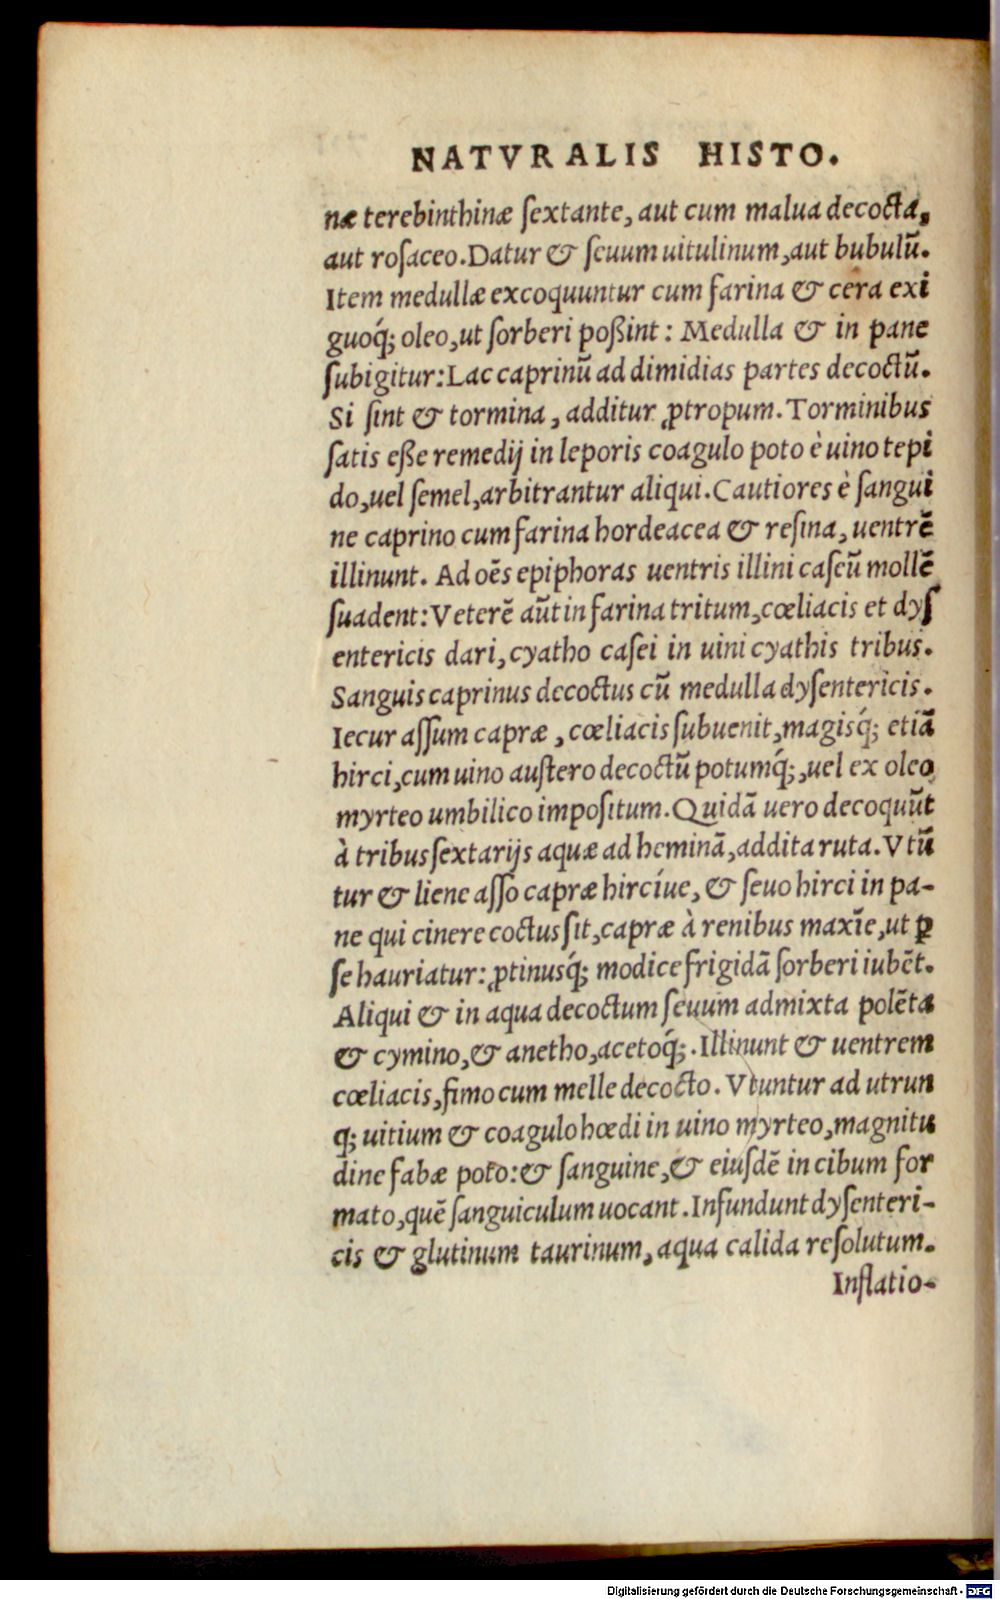 NATVRALIS HISTO.
næ terebinthinæ ſextante, aut cum malua decocta,
aut roſaceo. Datur & ſeuum uitulinum, aut bubulū.
Item medullæ excoquuntur cum farina & cera exi
guoq́; oleo, ut ſorberi poßint: Medulla & in pane
ſubigitur: Lac caprinū ad dimidias partes decoctū.
Si ſint & tormina, additur ꝓtropum. Torminibus
ſatis eße remedij in leporis coagulo poto è uino tepi
do, uel ſemel, arbitrantur aliqui. Cautiores è ſangui
ne caprino cum farina hordeacea & reſina, uentrē
illinunt. Ad oēs epiphoras uentris illini caſeū mollē
ſuadent: Veterē aūt in farina tritum, cœliacis et dyſ
entericis dari, cyatho caſei in uini cyathis tribus.
Sanguis caprinus decoctus cū medulla dyſentericis.
Iecur aſſum capræ, cœliacis ſubuenit, magisq́; etiā
hirci, cum uino auſtero decoctū potumq́;, uel ex oleo
myrteo umbilico impoſitum. Quidā uero decoquūt
à tribus ſextarijs aquæ ad heminā, addita ruta. Vtū
tur & liene aſſo capræ hircíue, & ſeuo hirci in pa-
ne qui cinere coctus ſit, capræ à renibus maxīe, ut ꝑ
ſe hauriatur: ꝓtinusq́; modice frigidā ſorberi iubēt.
Aliqui & in aqua decoctum ſeuum admixta polēta
& cymino, & anetho, acetoq́;. Illinunt & uentrem
cœliacis, fimo cum melle decocto. Vtuntur ad utrun
q; uitium & coagulo hœdi in uino myrteo, magnitu
dine fabæ poto: & ſanguine, & eiuſdē in cibum for
mato, quē ſanguiculum uocant. Infundunt dyſenteri-
cis & glutinum taurinum, aqua calida reſolutum.
Inflatio-
Digitalisierung gefördert durch die Deutsche Forschungsgemeinschaft - DFG